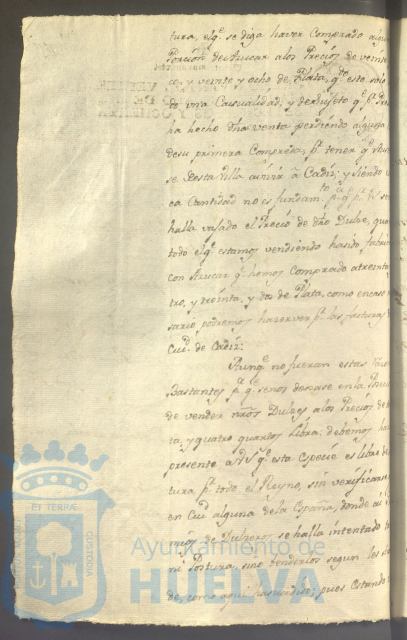 tura, el q.e se diga haver Comprado algun
Porcion de Azucar a los Precios de veinte
co, y veinte y ocho de Plata, q.do esto solo
do una Casualidad, y de sujeto q.e p.r
ha hecho dha venta perdiendo alguna
de su primera Compreda, p.r tener q.e
se desta Villa a vivir à Cadiz; y siendo
ca Cantidad no es fundam.to p.a q.e p.r
halla vajado el Precio de dho Dulze, qua
todo el q.e estamos vendiendo ha sido fabri
con Azucar q.e hemos Comprado a treinta
tro, y treinta, y dos de Plata, como en caso
sario podremos hazer ver p.r las facturas
Ciu.d de Cadiz:
Aunq.e no fueran estas
Bastantes p.a q.e se nos dexase en la
de vender nrōs Dulzes a los Precios de
ta, y quatro quartos Libra. debemos ha
presente a VS q.e esta Especie es libre de
tura p.r todo el Reyno, sin verificarse
en Ciu.d alguna de la España, donde ai
mios de Dulzeros, se halla intentado
ni Postura, sino venderlos segun los
de, como aqui ha sucedido; pues Estando
ET TERRÆ
CUSTODIA
Ayuntamiento de
HUELVA